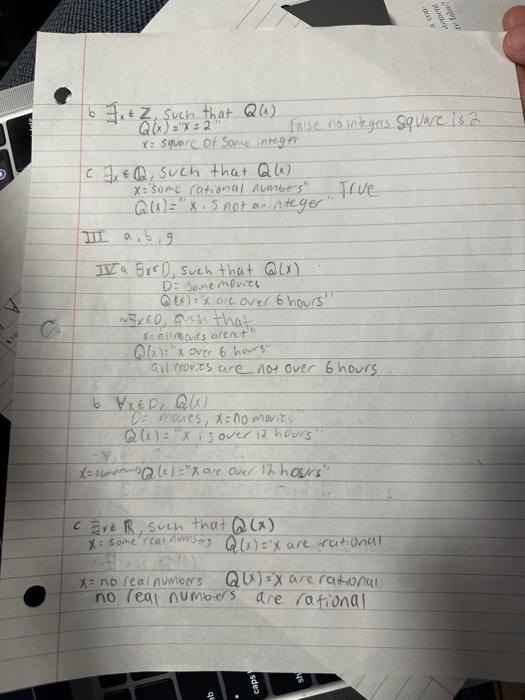 b ∃x ∈ Z, such that Q(x)
Q(x) = "x = 2"
false no integers square is 2
x = square of some integer
c ∃x ∈ Q, such that Q(x)
x = "some rational numbers" True
Q(x) = "x is not an integer"
III a, b, g
IV a ∃x ∈ D, such that Q(x)
D = some movies
Q(x) = "x are over 6 hours"
~∃x ∈ D, such that
x = all movies arent"
Q(x) = "x over 6 hours"
all movies are not over 6 hours
b ∀x ∈ D, Q(x)
D = movies, x = no movies
Q(x) = "x is over 12 hours"
x = some Q(x) = "x are over 12 hours"
c ∃x ∈ R, such that Q(x)
x = some real numbers Q(x) = x are rational
x = no real numbers Q(x) = x are rational
no real numbers are rational
caps